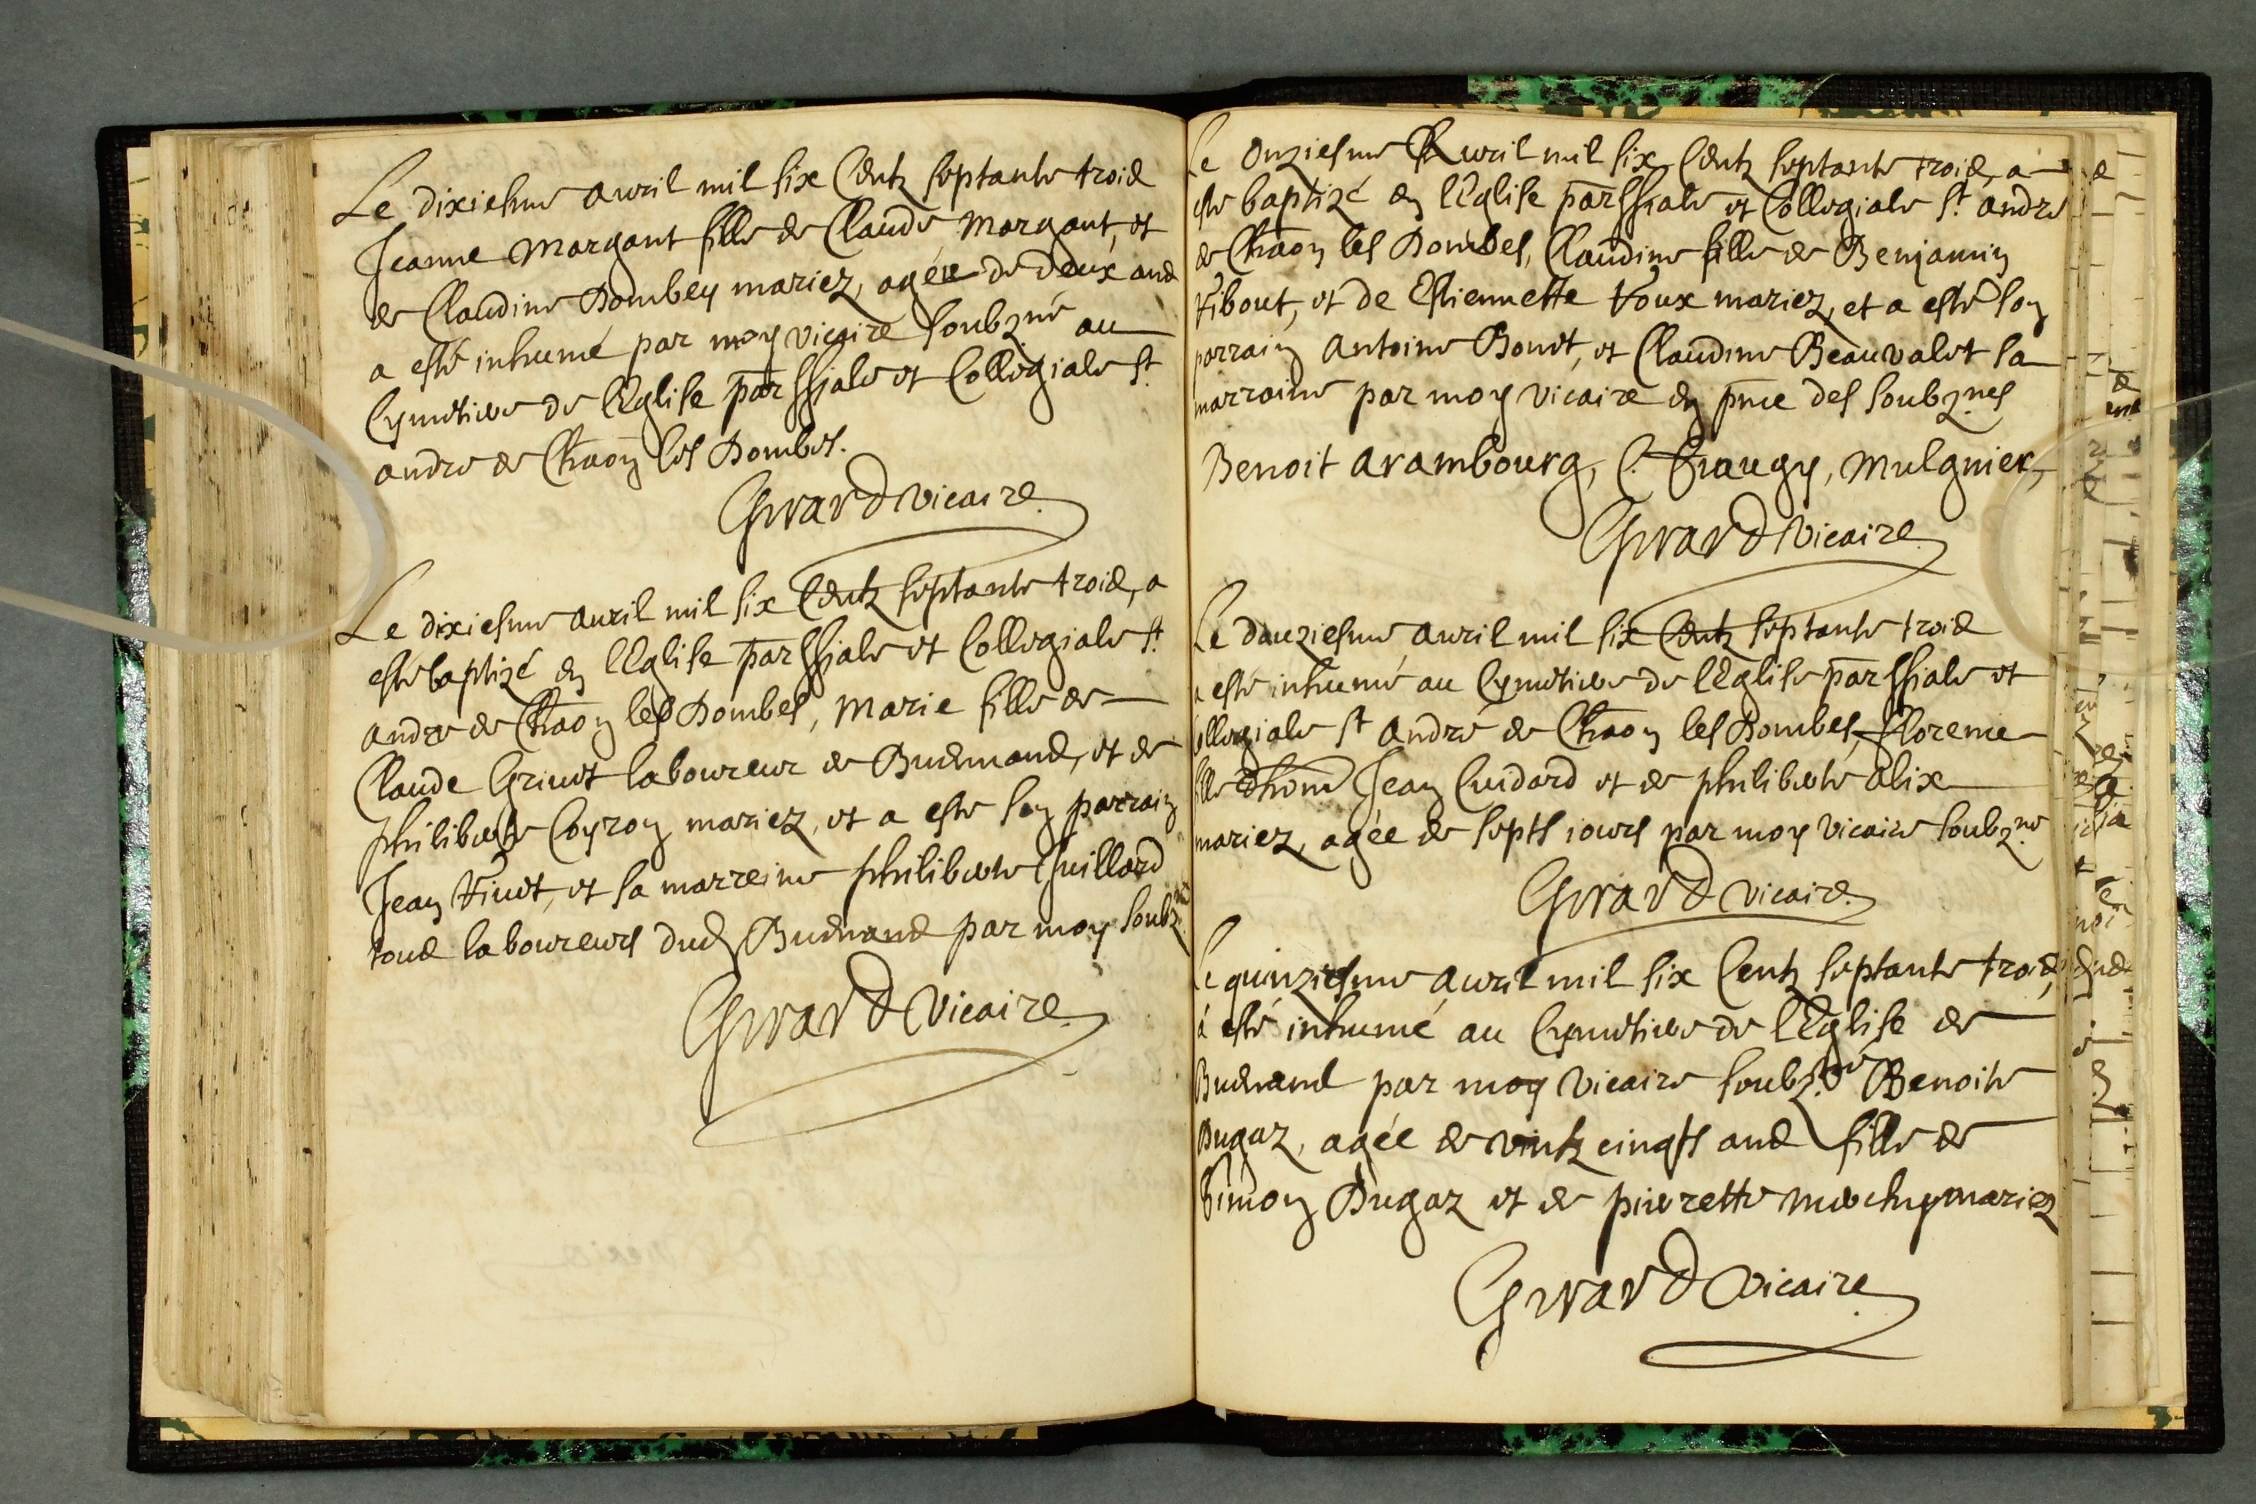 Le dixiesme avril mil six Centz septante trois
Jeanne Margant fille de Claude Margant, et
de Claudine Dombey mariez, agée de deux ans
a esté inhumé par moy vicaire soubzné au
Cymetiere de l'Eglise parsshiale et Collegiale St.
andre de Chaon les Dombes.
Girard vicaire.
Le dixiesme auril mil six Centz septante trois, a
esté baptizé en l'Eglise parsshiale et Collegiale St.
andre de Chaon les Dombes, Marie fille de
Claude Grivet laboureur de Buenand, et de
philiberte Coyron mariez, et a este son parrain
Jean Vivet, et sa marreine philiberte Guillard
tous laboureurs dud Buenand par moy soubzné
Girard Vicaire.
Le Onziesme Avril mil six Centz septante trois, a
este baptizé en l'Eglise parsshiale et Collegiale St. andre
de Chaon les Dombes, Claudine fille de Benjamin
Tibout, et de Estiennette Voux mariez, et a esté son
parrain Antoine Bonet, et Claudine Beauvalet sa
marraine par moy vicaire en pnce des soubznes
Benoit arambourg, C. Fraugy, Mulgnier,
Girard Vicaire.
Le douziesme avril mil six Centz septante trois
a esté inhumé au Cymetiere de l'Eglise parsshiale et
Collegiale St André de Chaon les Dombes, Florence
fille d'hon Jean Cuidard et de philiberte alix
mariez, agée de septs iours par moy vicaire soubzne
Girard vicaire.
Le quinziesme avril mil six Centz septante trois,
a esté inhumé au Cymetiere de l'Eglise de
Buenand par moy Vicaire soubzné Benoite
Dugaz, agée de vintz cinqts ans fille de
Simon Dugaz et de pierrette mariez
Girard Vicaire.